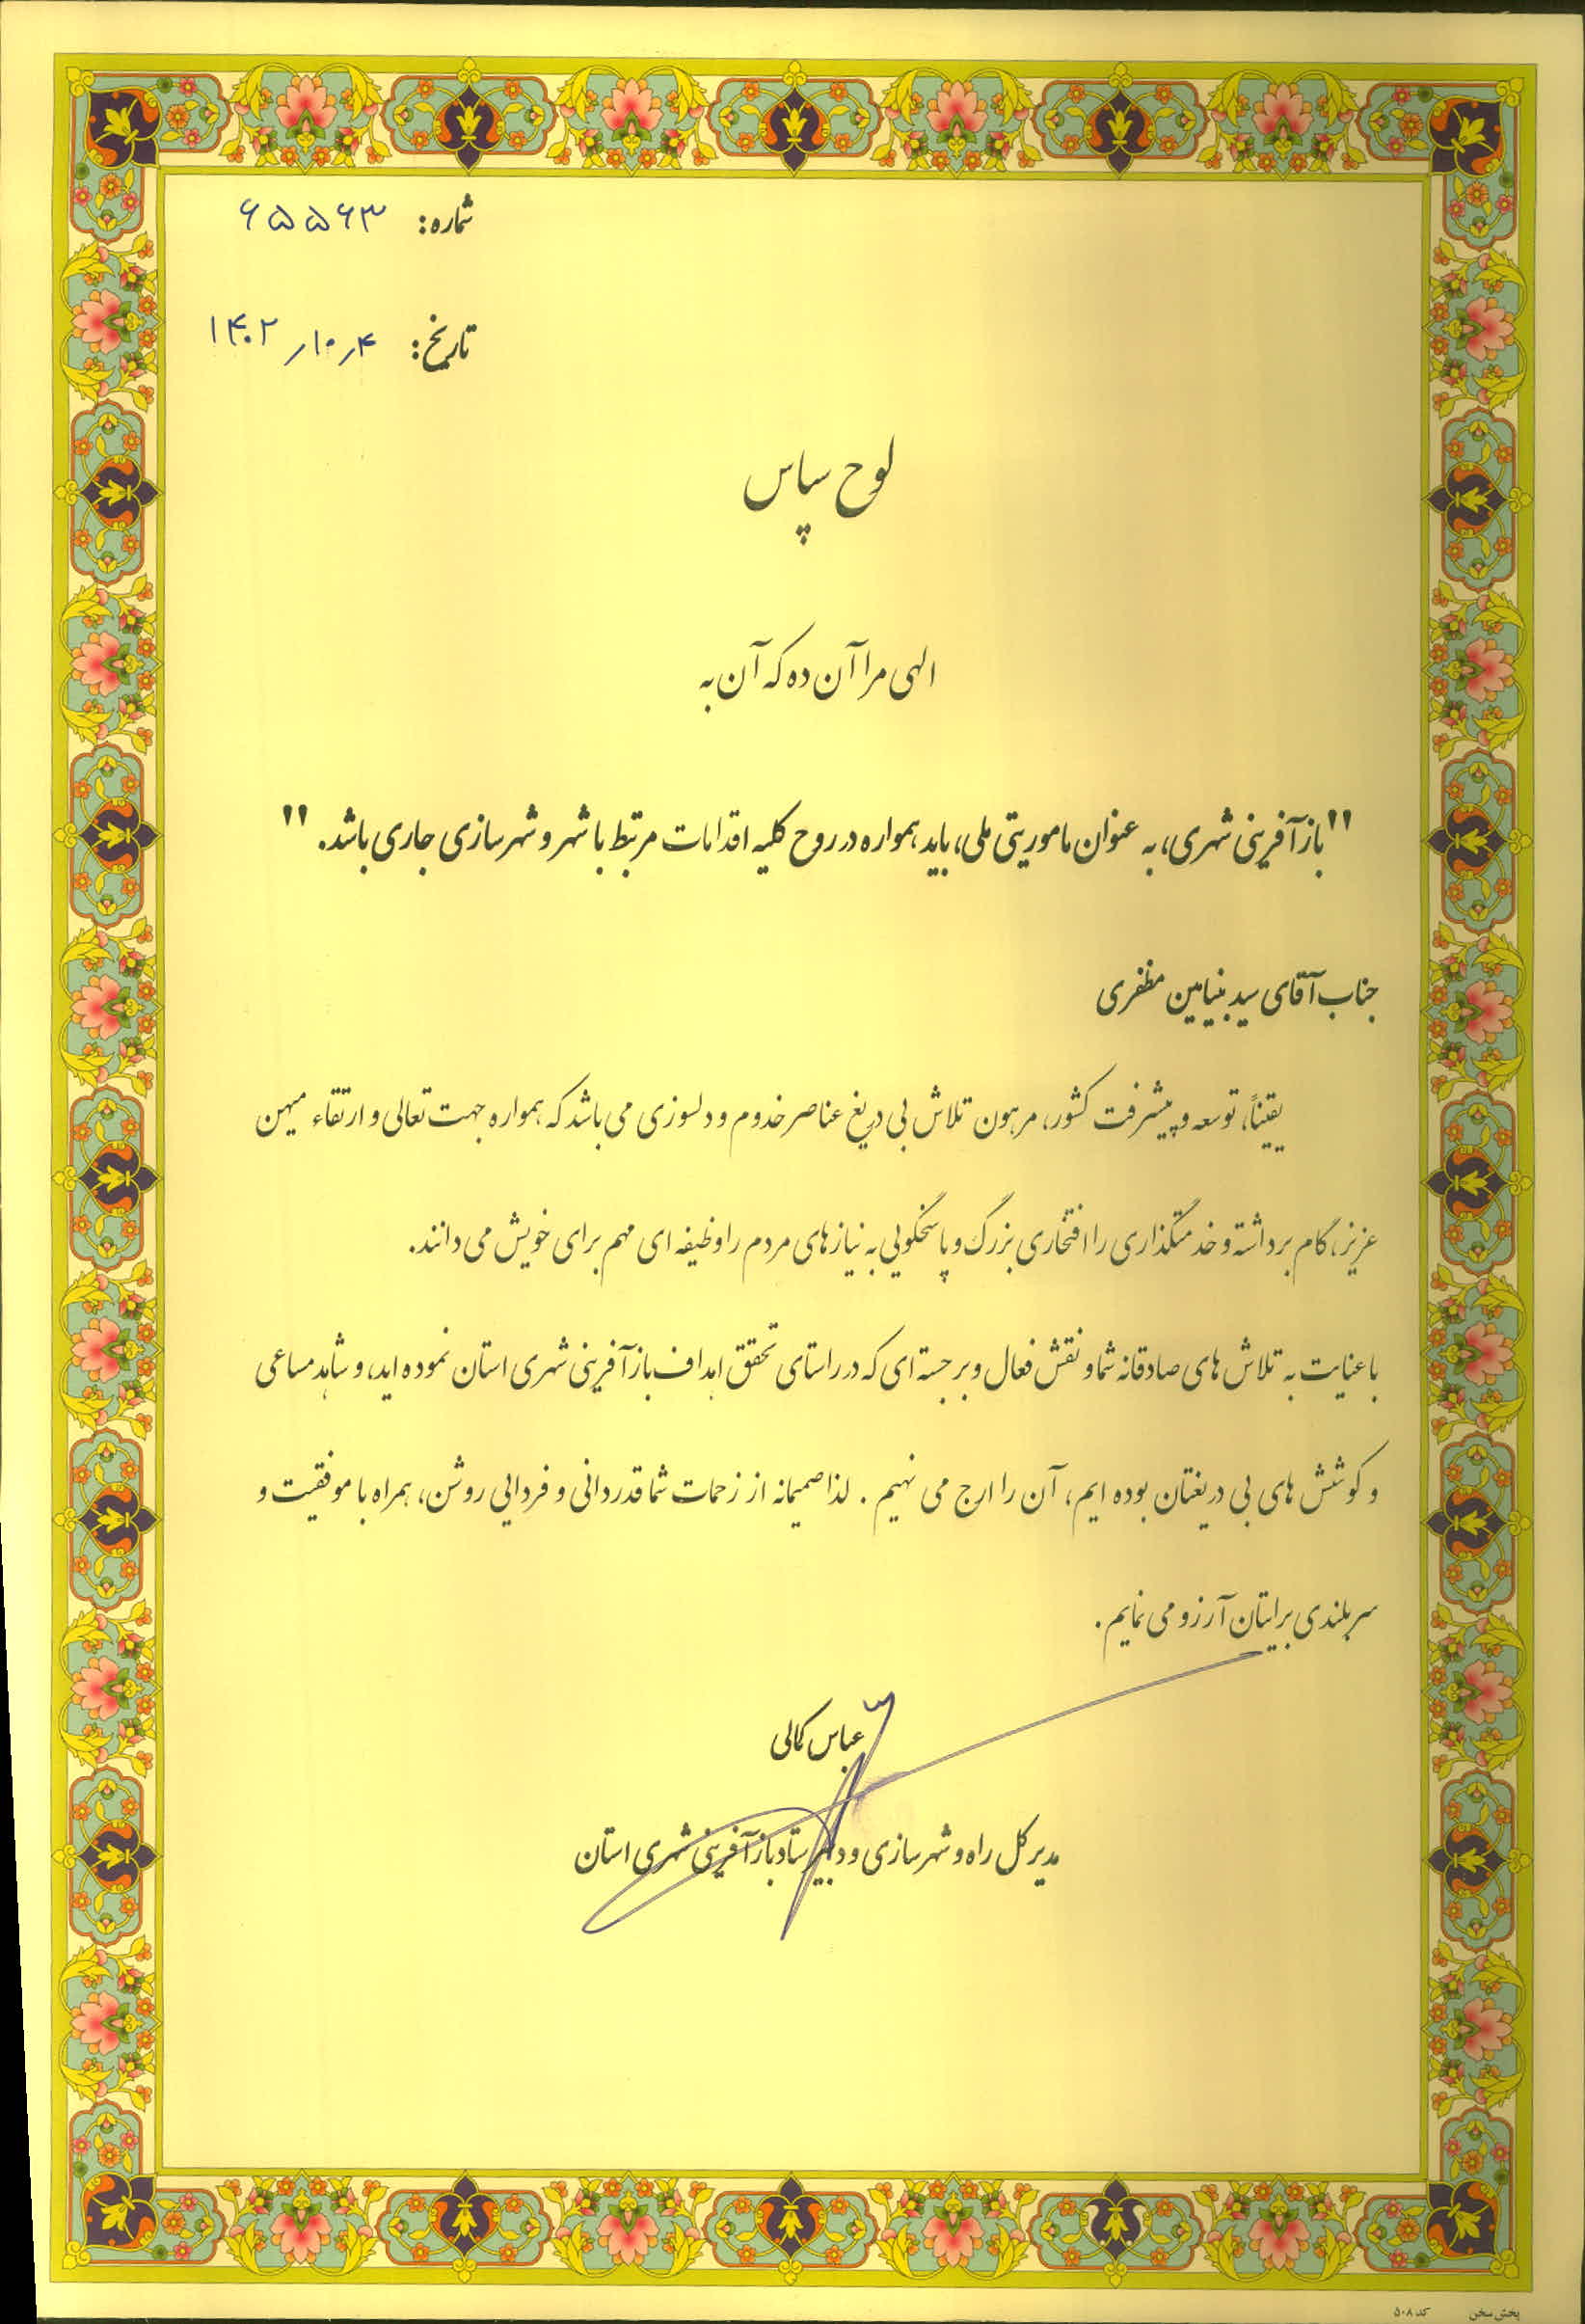 شماره: ۶۵۵۶۳
تاریخ: ۱۴۰۲/۱۰/۴
لوح سپاس
الهی مرا آن ده که آن به
"بازآفرینی شهری، به عنوان ماموریتی ملی، باید همواره در روح کلیه اقدامات مرتبط با شهر و شهرسازی جاری باشد."
جناب آقای سید بنیامین مظفری
یقیناً، توسعه و پیشرفت کشور، مرهون تلاش بی دریغ عناصر خدوم و دلسوزی می باشد که همواره جهت تعالی و ارتقاء میهن
عزیز، گام برداشته و خدمتگذاری را افتخاری بزرگ و پاسخگویی به نیازهای مردم را وظیفه ای مهم برای خویش می دانند.
با عنایت به تلاش های صادقانه شما و نقش فعال و برجسته ای که در راستای تحقق اهداف بازآفرینی شهری استان نموده اید، و شاهد مساعی
و کوشش های بی دریغتان بوده ایم، آن را ارج می نهیم. لذا صمیمانه از زحمات شما قدردانی و فردایی روشن، همراه با موفقیت و
سربلندی برایتان آرزو می نمایم.
عباس کمالی
مدیر کل راه و شهرسازی و دبیر ستاد بازآفرینی شهری استان
پخش سخن کد ۵۰۸